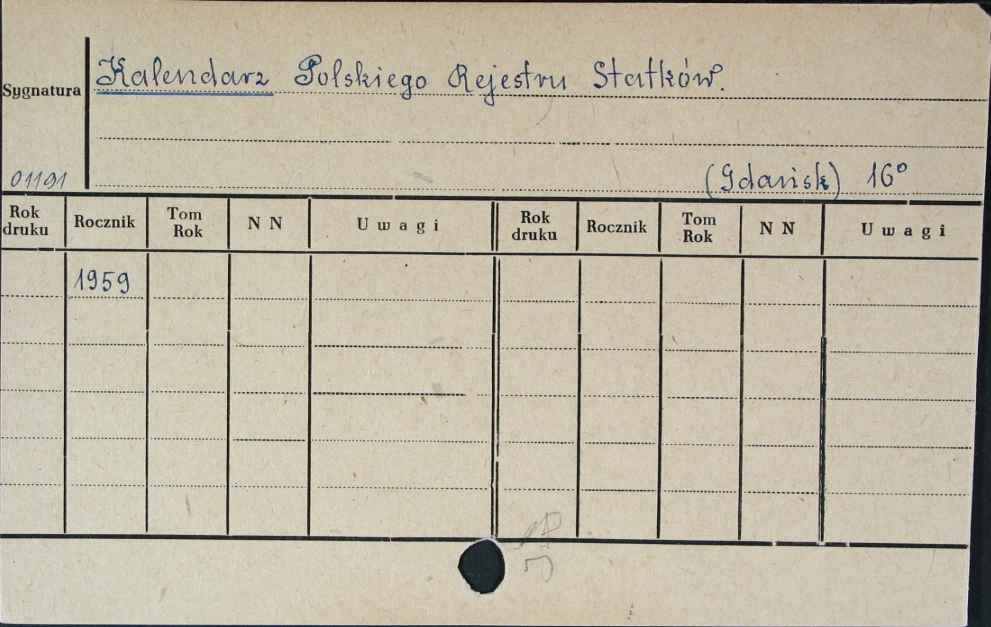 Kalendarz Polskiego Rejestru Statków.
Sygnatura
(Gdańsk) 16°
01191
Rok druku Rocznik Tom Rok N N Uwagi Rok druku Rocznik Tom Rok N N Uwagi
1959